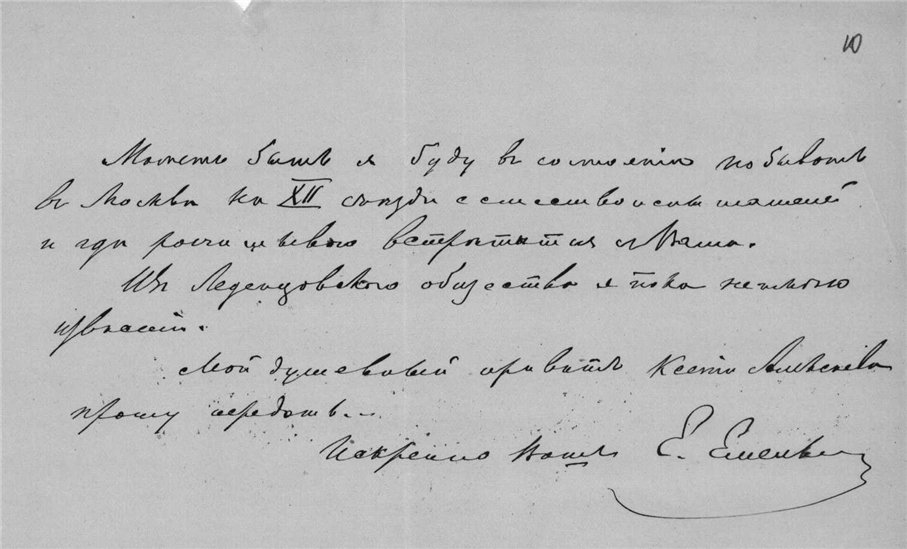 10
Можетъ быть я буду въ состоянію побывать
въ Москвѣ на XII съѣздѣ естествоиспытателей
и гдѣ расчитываю встрѣтится съ Вами.
Изъ Леденцовского общества я пока не имѣю
извѣстій.
Мой душевный привѣтъ Ксеніи Алексѣевнѣ
прошу передать.
Искренно Вашъ Е.